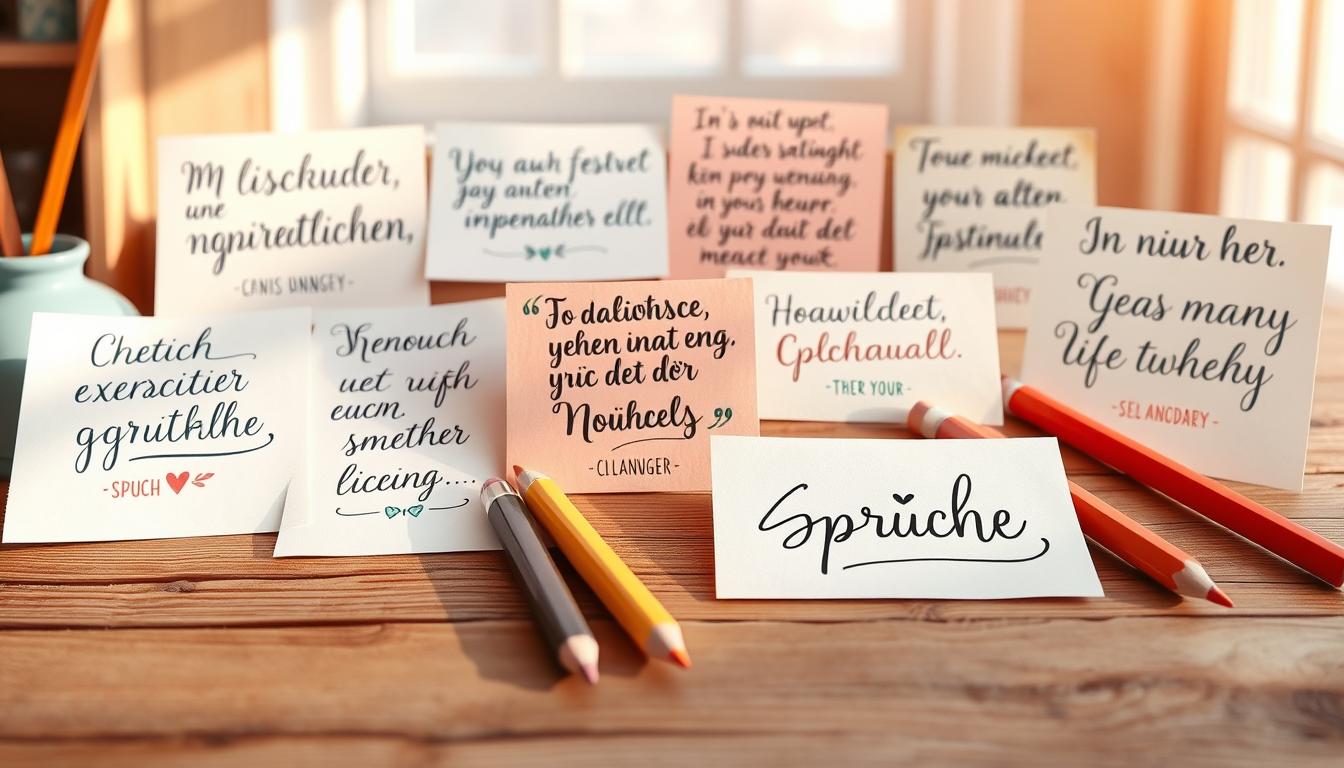 M lischuder,
une
ngpiredtlichen,
-CANIS UNNGEY-
Yoy auh festvet
jay anten
impenather ellt.
In's out upet.
I sudes satinght
kin pey uenung.
in yous heurr.
el yur dait det
meact yout.
Toue mickeet,
your alten
Fpstinule
In niur her.
Geas many
Life twhehy
-SEL ANCDARY-
Chetich
exeracitier
ggrutklhe
-SPUCH
Kenouch
uet
eucm.
smether
liceing....
“Jo daliohsce,
yehen inat eng.
yric det dör
Noühcels”
-CILANVGER-
Hoawildeet,
Cplchauall.
-THER YOUR-
Sprüche